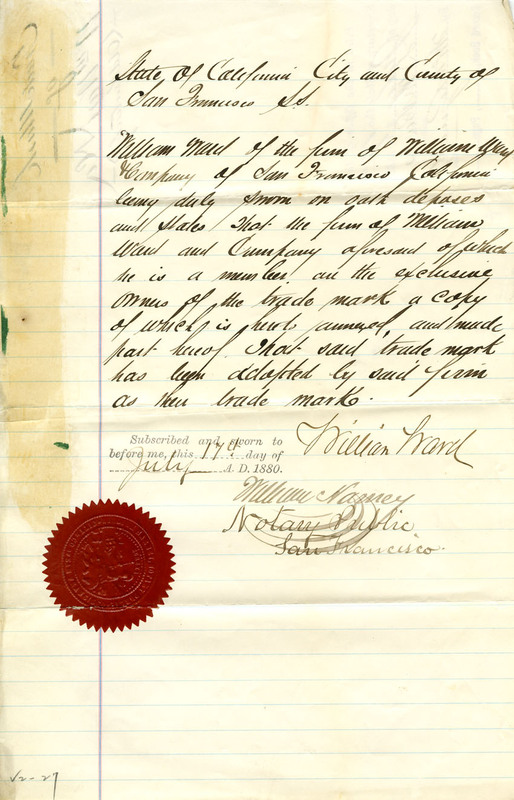 State of California City and County of
San Francisco SS.
William Ward of the firm of William Ward
& Company of San Francisco California
being duly sworn on oath deposes
and states That the firm of William
Ward and Company aforesaid of which
he is a member, are the exclusive
owners of the trade mark a copy
of which, is hereto annexed, and made
part hereof. That said trade mark
has been adopted by said firm
as their trade mark.
Subscribed and sworn to
before me, this 17th day of
July A. D. 1880.
William Ward
William
Notary Public
San Francisco.